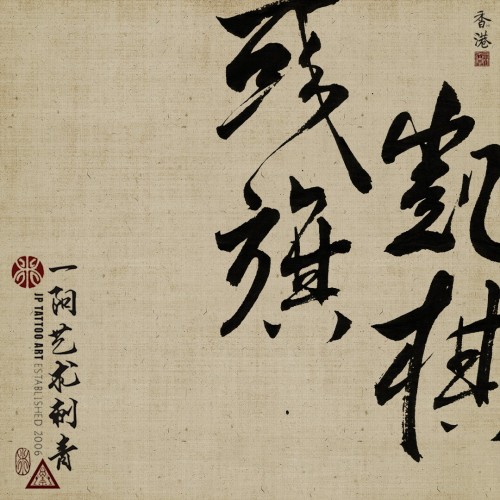 香港
凱棋
旗
一阳艺术刺青
JP TATTOO ART ESTABLISHED 2006